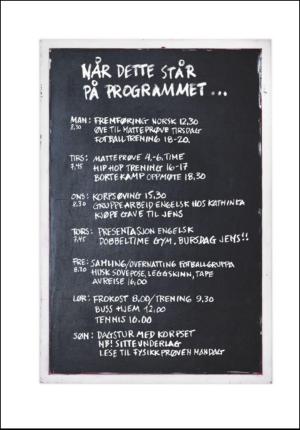 NÅR DETTE STÅR
PÅ PROGRAMMET...
MAN: FREMFØRING NORSK 12.30
8.30 ØVE TIL MATTEPRØVE TIRSDAG
FOTBALLTRENING 18-20.
TIRS: MATTEPRØVE 4.-6. TIME
7.45 HIP HOP TRENING 16-17
BORTEKAMP OPPMØTE 18.30
ONS: KORPSØVING 15.30
8.30 GRUPPEARBEID ENGELSK HOS KATHINKA
KJØPE GAVE TIL JENS
TORS: PRESENTASJON ENGELSK
7.45 DOBBELTIME GYM, BURSDAG JENS!!
FRE: SAMLING/OVERNATTING FOTBALLGRUPPA
8.30 HUSK SOVEPOSE, LEGGSKINN, TAPE
AVREISE 16.00
LØR: FROKOST 8.00/TRENING 9.30
BUSS HJEM 12.00
TENNIS 16.00
SØN: DAGSTUR MED KORPSET
NB! SITTEUNDERLAG
LESE TIL FYSIKKPRØVEN MANDAG